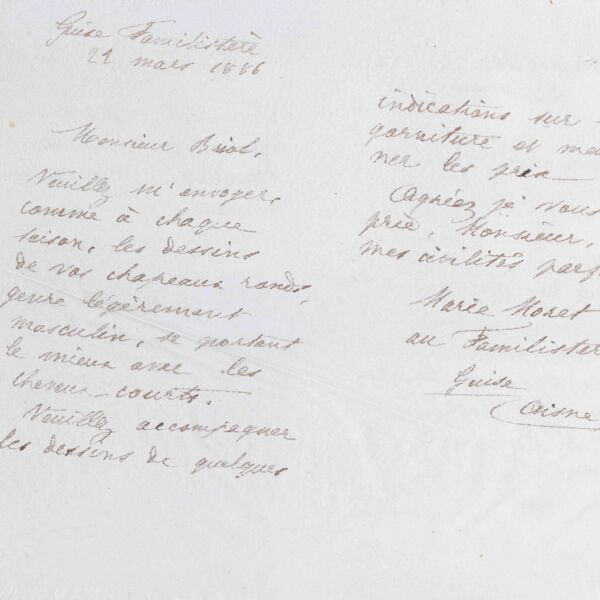 Guise Familistère
22 mars 1886
Monsieur Briol.
Veuillez m'envoyer,
comme à chaque
saison, les dessins
de vos chapeaux ronds,
genre légèrement
masculin, se portant
le mieux avec les
cheveux courts.
Veuillez accompagner
les dessins de quelques
indications sur
garniture et me
ner les prix
Agréez je vous
prie, Monsieur,
mes civilités parf
Marie Moret
au Familister
Guise
(Aisne